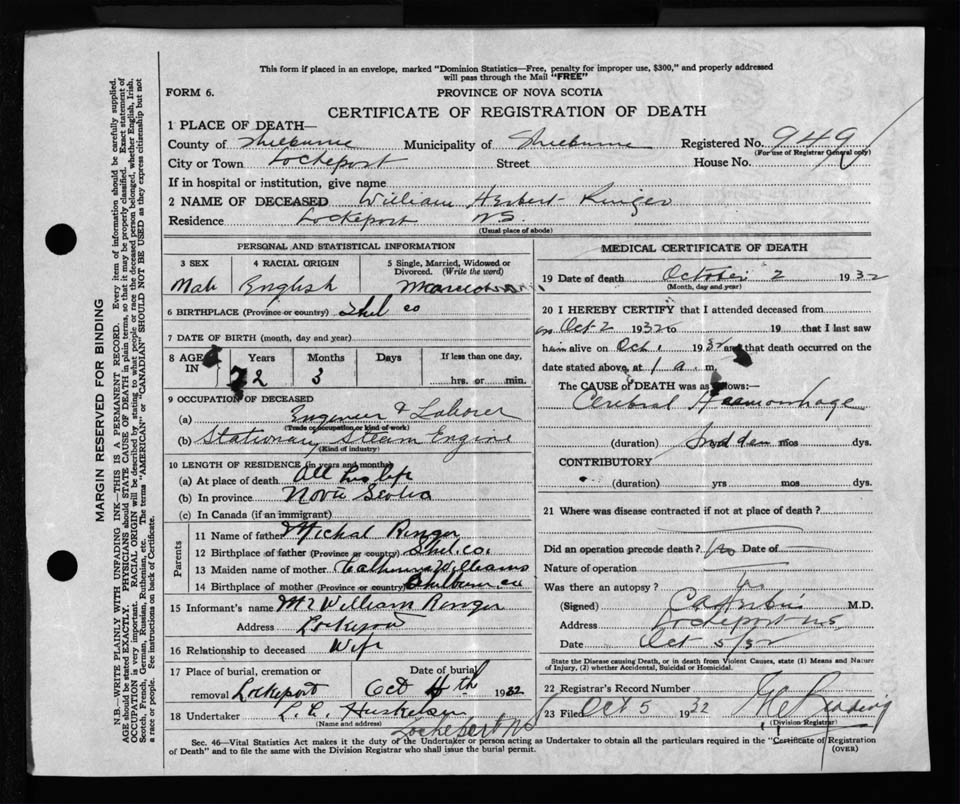 This form if placed in an envelope, marked "Dominion Statistics—Free, penalty for improper use, $300," and properly addressed
will pass through the Mail "FREE"
FORM 6.
PROVINCE OF NOVA SCOTIA
CERTIFICATE OF REGISTRATION OF DEATH
1 PLACE OF DEATH—
County of Shelburne Municipality of Shelburne Registered No. 949
(For use of Registrar General only)
City or Town Lockeport Street House No.
If in hospital or institution, give name
2 NAME OF DECEASED William Herbert Ringer
Residence Lockeport NS.
(Usual place of abode)
PERSONAL AND STATISTICAL INFORMATION
3 SEX
Male
4 RACIAL ORIGIN
English
5 Single, Married, Widowed or
Divorced. (Write the word)
6 BIRTHPLACE (Province or country) Shel co
7 DATE OF BIRTH (month, day and year)
8 AGE IN
Years Months Days If less than one day,
72 3 hrs. or min.
9 OCCUPATION OF DECEASED
(a) Engineer & Laborer
(Trade or occupation or kind of work)
(b) Stationary Steam Engine
(Kind of industry)
10 LENGTH OF RESIDENCE (in years and months)
(a) At place of death All his life
(b) In province Nova Scotia
(c) In Canada (if an immigrant)
Parents
11 Name of father Michal Ringer
12 Birthplace of father (Province or country) Shel. co.
13 Maiden name of mother Catherine Williams
14 Birthplace of mother (Province or country) Shelburn co
15 Informant's name Mr William Ringer
Address Lockeport
16 Relationship to deceased Wife
17 Place of burial, cremation or
removal Lockeport
Date of burial
Oct 4th 1932
18 Undertaker L. L.
(Name and address)
Lockeport NS
MEDICAL CERTIFICATE OF DEATH
19 Date of death October 2 1932
(Month, day and year)
20 I HEREBY CERTIFY that I attended deceased from
on Oct 2 1932 to 19 that I last saw
him alive on Oct 1 1932 and that death occurred on the
date stated above, at 1 a. m.
The CAUSE of DEATH was as follows:—
Cerebral Haemorrhage
(duration) Sudden mos dys.
CONTRIBUTORY
(duration) yrs mos dys.
21 Where was disease contracted if not at place of death?
Did an operation precede death? No Date of
Nature of operation
Was there an autopsy? No
(Signed) M.D.
Address Lockeport NS
Date Oct 5/32
State the Disease causing Death, or in death from Violent Causes, state (1) Means and Nature
of Injury, (2) whether Accidental, Suicidal or Homicidal.
22 Registrar's Record Number
23 Filed Oct 5 1932
(Division Registrar)
Sec. 46—Vital Statistics Act makes it the duty of the Undertaker or person acting as Undertaker to obtain all the particulars required in the "Certificate of Registration
of Death" and to file the same with the Division Registrar who shall issue the burial permit.
(OVER)
MARGIN RESERVED FOR BINDING
N.B.—WRITE PLAINLY WITH UNFADING INK—THIS IS A PERMANENT RECORD. Every item of information should be carefully supplied.
AGE should be stated EXACTLY. PHYSICIANS should STATE CAUSE OF DEATH in plain terms, so that it may be properly classified. Exact statement of
OCCUPATION is very important. RACIAL ORIGIN will be described by stating to what people or race the deceased person belonged, whether English, Irish,
Scotch, French, German, Russian, Ruthenian, etc. The terms "AMERICAN" or "CANADIAN" SHOULD NOT BE USED as they express citizenship but not
a race or people. See instructions on back of Certificate.